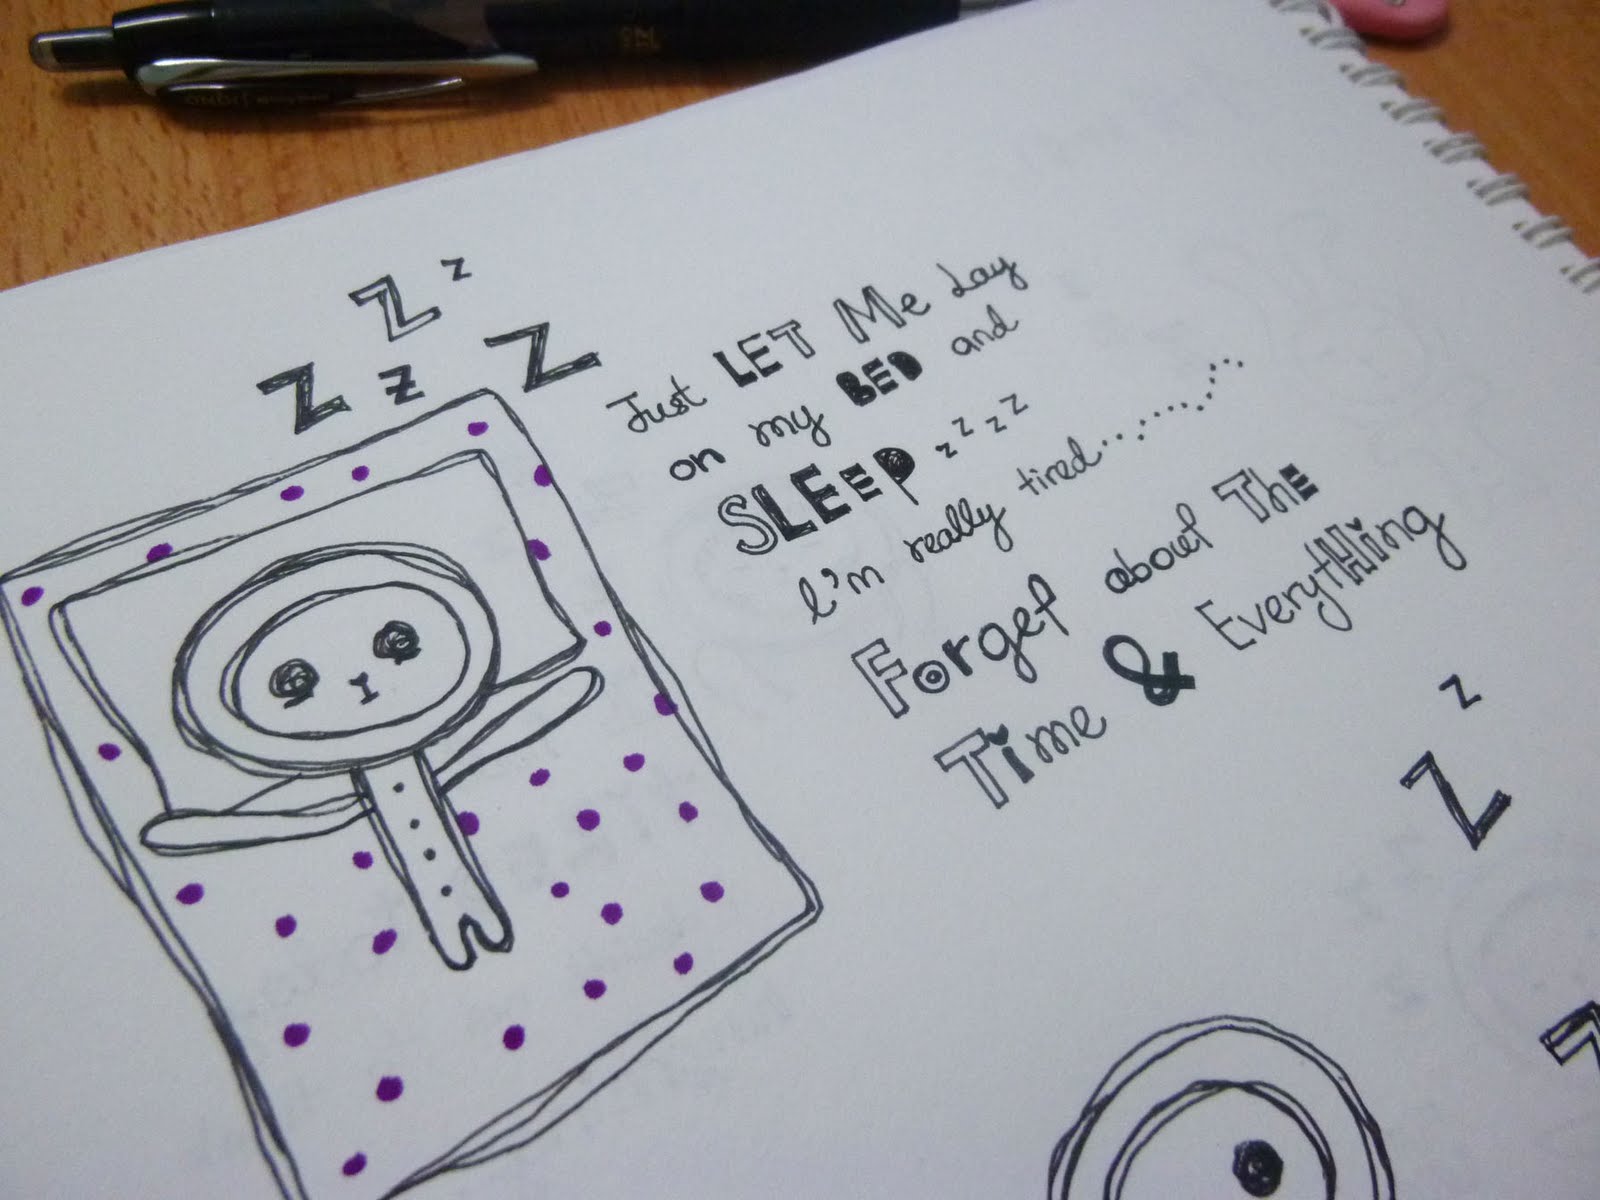 z
Z
Z z Z
Just LET Me Lay
on my BED and
SLEEP z z z z
I'm really tired..............
Forget about The
Time & Everything
z
Z